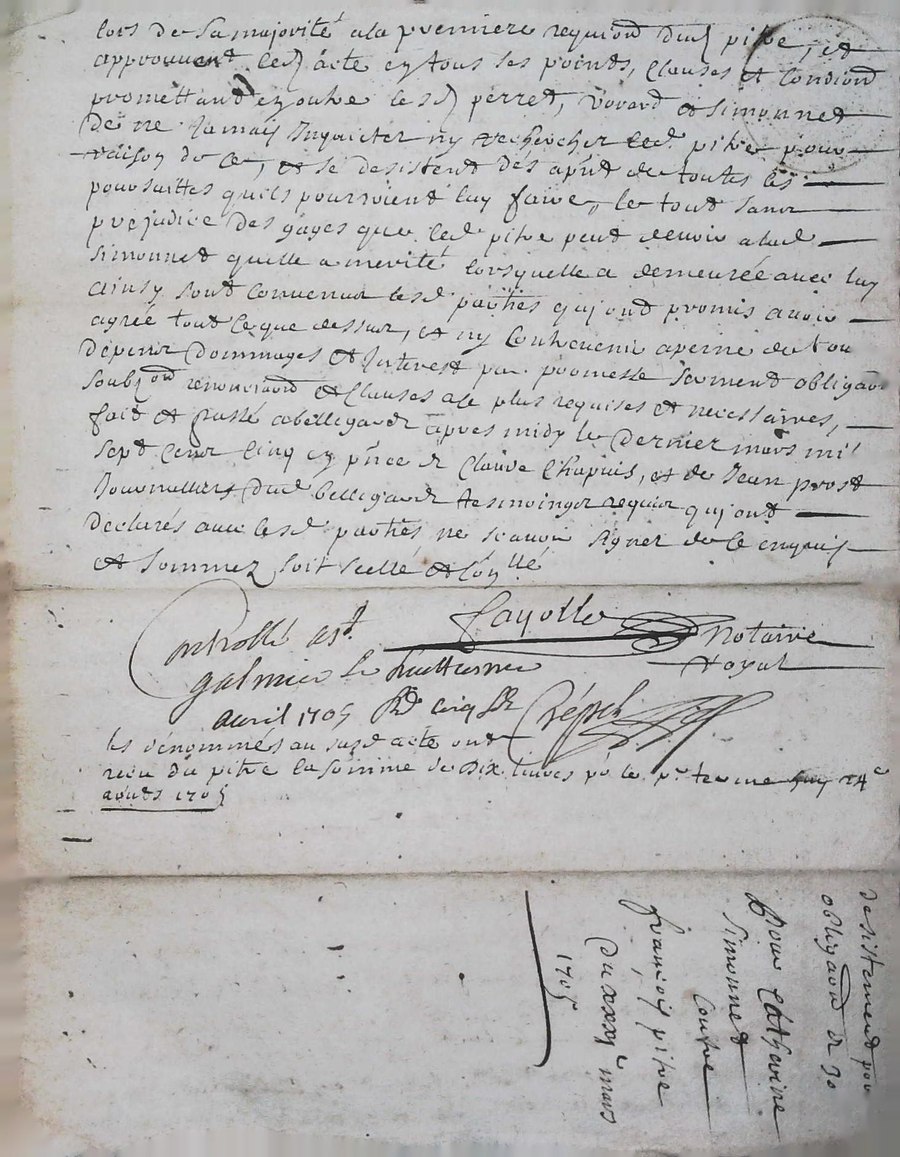 lors de sa majorité a la premiere requiond dud pitre, et
approuvent led acte en tous ses points, clauses et condiond
promettant en outre lesd perret, vovard et simonnet
de ne jamais Inquieter ny rechercher led pitre pour
raison de ce, et se desistent dés apnt de toutes les
poursuittes quils pourroient luy faire, le tout sans
prejudice des gages que led pitre peut devoir a lad
simonnet quelle a merité lorsquelle a demeurée avec luy
ainsy sont convenus lesd parties qui ont promis avoir
agréé tout ce que dessus, et ny contrevenir a peine de tous
depens dommages et Interest par promesse serment obligaon
soubz on renonciaond et clauses a ce plus requises et necessaires,
fait et passé a bellegarde apres midy le dernier mars mil
sept cens cinq en pnce de Claude Chapuis, et de Jean prost
Journalliers dud bellegarde tesmoings requis qui ont
declarés avec lesd parties ne scavoir signer de ce enquis
et sommez soit scellé et conllé
Fayolle Notaire
Royal
Controllé a st
galmier le huittiesme
avril 1705 Rd cinq
les dénommés au susd acte ont
receu du pitre la somme de dix livres pr le pr terme 24e
aoust 1705
desistement pour
obligaond de 30
Pour Catherine
simonnet
contre
françois pitre
du xxxje mars
1705